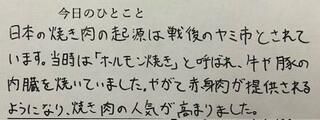 今日のひとこと
日本の焼き肉の起源は戦後のヤミ市とされて
います。当時は「ホルモン焼き」と呼ばれ、牛や豚の
内臓を焼いていました。やがて赤身肉が提供される
ようになり、焼き肉の人気が高まりました。